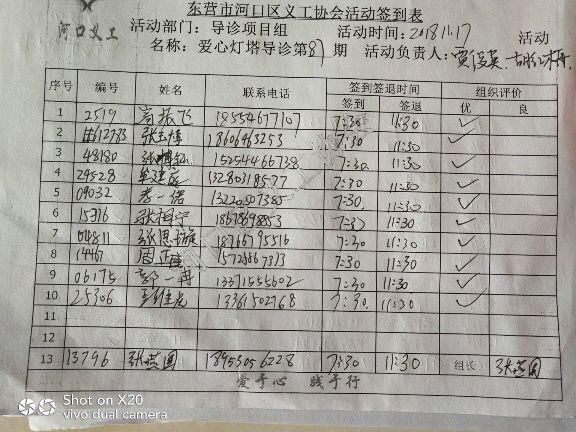 东营市河口区义工协会活动签到表
河口义工
活动部门：导诊项目组 活动时间：2018.11.17 活动
名称：爱心灯塔导诊第87期 活动负责人：
序号 编号 姓名 联系电话 签到签退时间 组织评价
签到 签退 优 良
1 2519 振飞 18554677107 7:30 11:30 ✓
2 18606463253 7:30 11:30 ✓
3 48180 15254466738 7:30 11:30 ✓
4 29528 13280318577 7:30 11:30 ✓
5 09032 李一诺 13220507385 7:30 11:30 ✓
6 15316 18678698853 7:30 11:30 ✓
7 04811 张思 18766795516 7:30 11:30 ✓
8 14467 周 15726867373 7:30 11:30 ✓
9 06175 郭一冉 13371555602 7:30 11:30 ✓
10 25306 13361502768 7:30 11:30 ✓
11
12
13 13796 张燕国 18953056228 7:30 11:30 组长 张燕国
爱于心 践于行
Shot on X20
vivo dual camera